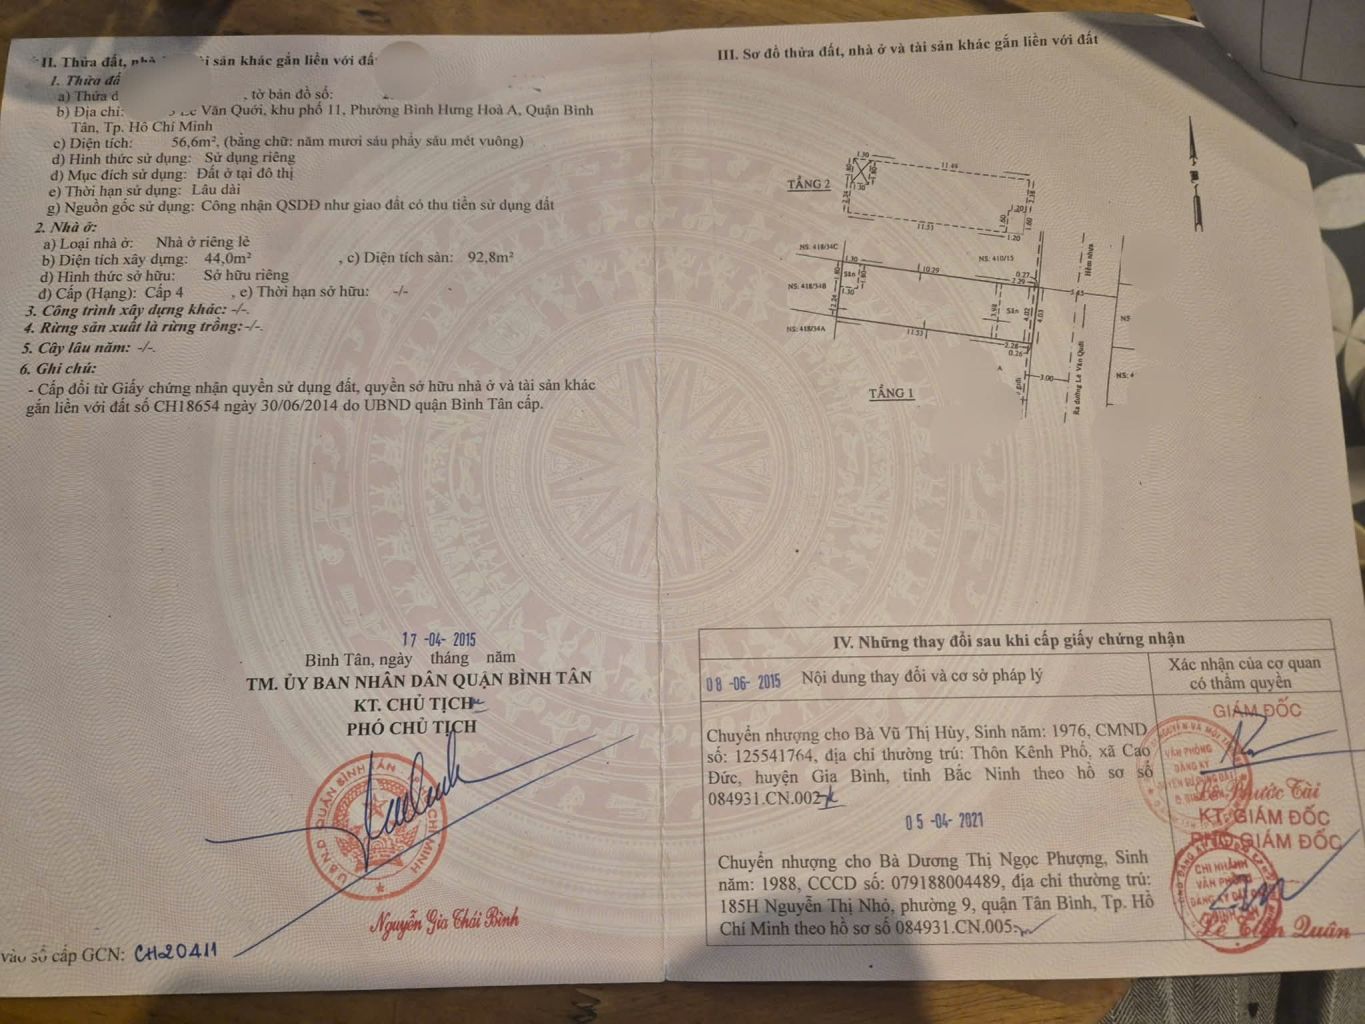 II. Thửa đất, nhà ài sản khác gắn liền với đất
1. Thửa đấ
a) Thửa đ , tờ bản đồ số:
b) Địa chỉ: Lê Văn Quới, khu phố 11, Phường Bình Hưng Hoà A, Quận Bình
Tân, Tp. Hồ Chí Minh
c) Diện tích: 56,6m², (bằng chữ: năm mươi sáu phẩy sáu mét vuông)
d) Hình thức sử dụng: Sử dụng riêng
đ) Mục đích sử dụng: Đất ở tại đô thị
e) Thời hạn sử dụng: Lâu dài
g) Nguồn gốc sử dụng: Công nhận QSDĐ như giao đất có thu tiền sử dụng đất
2. Nhà ở:
a) Loại nhà ở: Nhà ở riêng lẻ
b) Diện tích xây dựng: 44,0m² , c) Diện tích sàn: 92,8m²
d) Hình thức sở hữu: Sở hữu riêng
đ) Cấp (Hạng): Cấp 4 , e) Thời hạn sở hữu: -/-
3. Công trình xây dựng khác: -/-.
4. Rừng sản xuất là rừng trồng: -/-.
5. Cây lâu năm: -/-.
6. Ghi chú:
- Cấp đổi từ Giấy chứng nhận quyền sử dụng đất, quyền sở hữu nhà ở và tài sản khác
gắn liền với đất số CH18654 ngày 30/06/2014 do UBND quận Bình Tân cấp.
17 -04- 2015
Bình Tân, ngày tháng năm
TM. ỦY BAN NHÂN DÂN QUẬN BÌNH TÂN
KT. CHỦ TỊCH
PHÓ CHỦ TỊCH
U.B.N.D QUẬN BÌNH TÂN
Nguyễn Gia Thái Bình
vào sổ cấp GCN: CH20411
III. Sơ đồ thửa đất, nhà ở và tài sản khác gắn liền với đất
TẦNG 2
1.30
11.49
1.30
11.53
1.20
1.60
1.60
1.20
NS: 418/34C
NS: 410/15
1.30
Sân
10.29
0.27
2.29
Hẻm nhựa
NS: 418/34B
1.30
2.24
3.98
Sân
4.02
4.03
3.45
NS
NS: 418/34A
11.53
2.28
0.26
A
3.00
NS: 4
Ra đường Lê Văn Quới
TẦNG 1
IV. Những thay đổi sau khi cấp giấy chứng nhận
08 -06- 2015 Nội dung thay đổi và cơ sở pháp lý
Xác nhận của cơ quan
có thẩm quyền
Chuyển nhượng cho Bà Vũ Thị Hùy, Sinh năm: 1976, CMND
số: 125541764, địa chỉ thường trú: Thôn Kênh Phố, xã Cao
Đức, huyện Gia Bình, tỉnh Bắc Ninh theo hồ sơ số
084931.CN.002
GIÁM ĐỐC
VĂN PHÒNG
ĐĂNG KÝ
Lê Phước Tài
05 -04- 2021
Chuyển nhượng cho Bà Dương Thị Ngọc Phượng, Sinh
năm: 1988, CCCD số: 079188004489, địa chỉ thường trú:
185H Nguyễn Thị Nhỏ, phường 9, quận Tân Bình, Tp. Hồ
Chí Minh theo hồ sơ số 084931.CN.005
KT. GIÁM ĐỐC
PHÓ GIÁM ĐỐC
CHI NHÁNH
VĂN PHÒNG
ĐĂNG KÝ ĐẤT ĐAI
Lê Tiến Quân